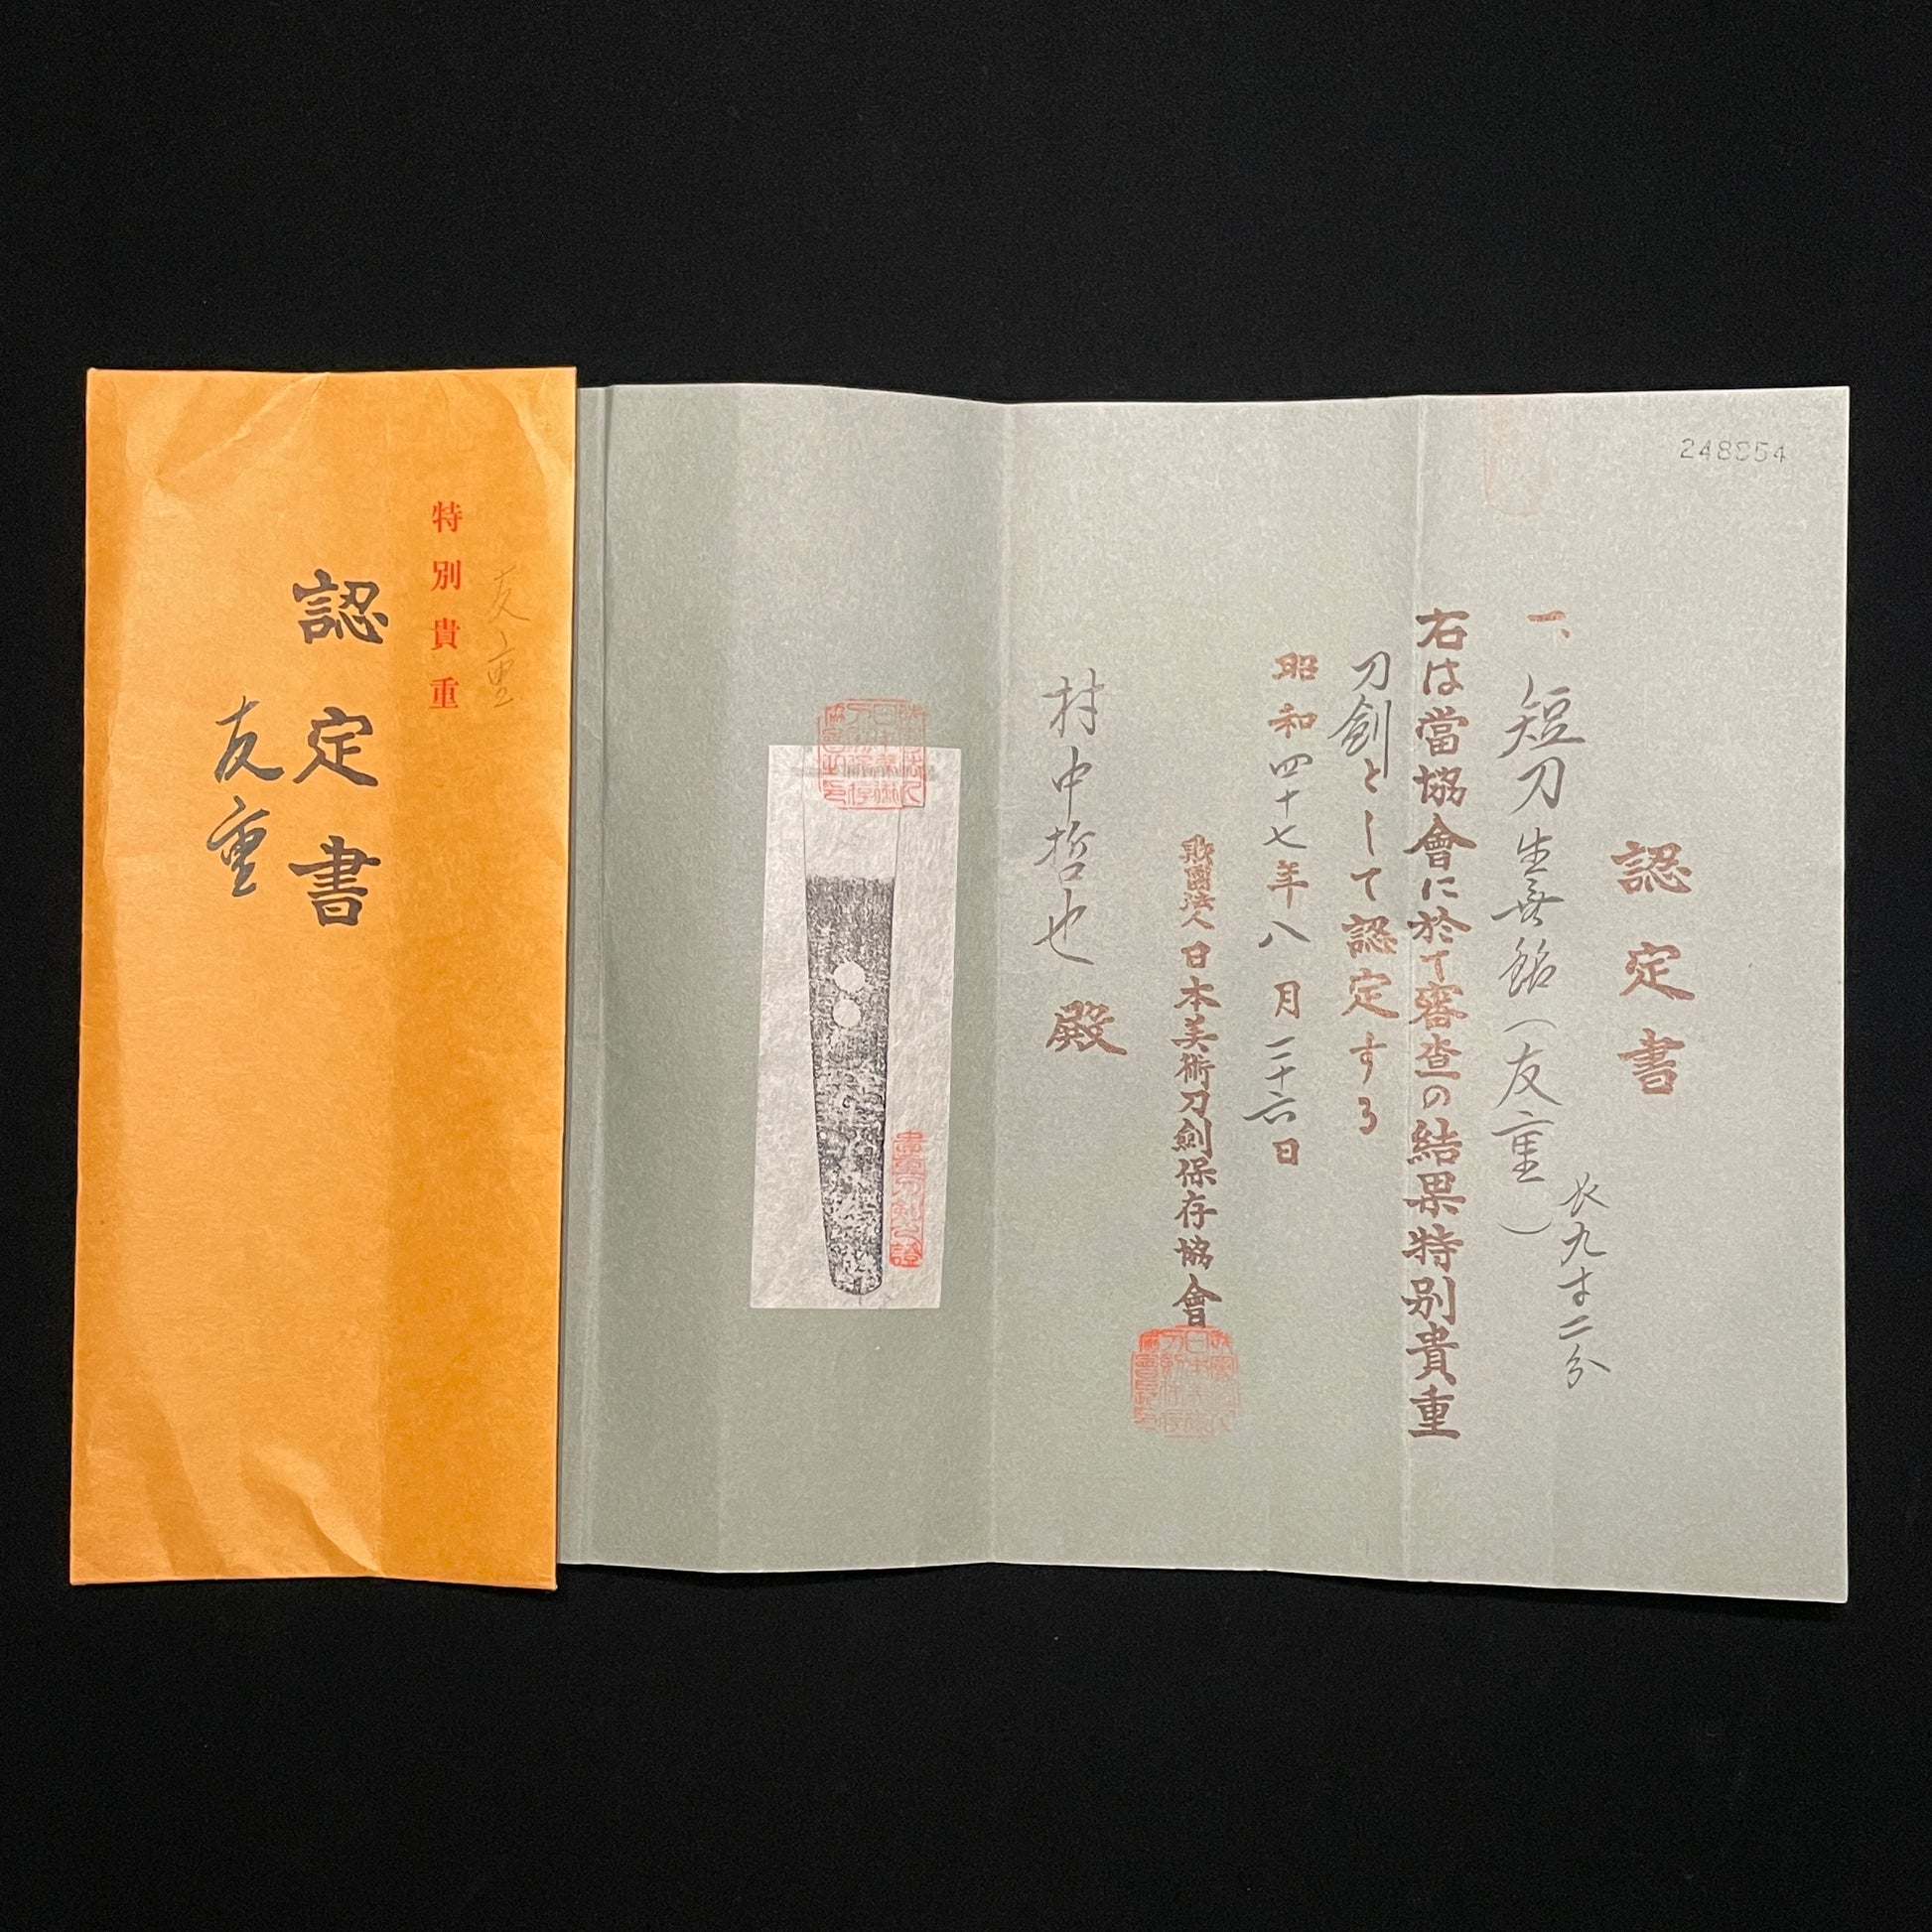 認定書
一、短刀 生無銘(友重)
長九寸二分
右は當協會に於て審査の結果特別貴重
刀劍として認定する
昭和四十七年八月二十六日
財團法人日本美術刀劍保存協會
村中哲也殿
友重
特別貴重
認定書
友重